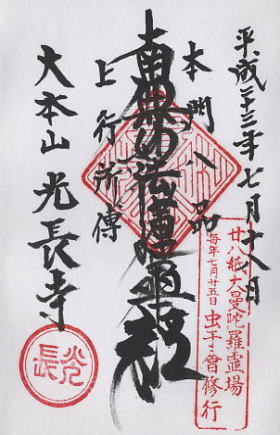 平成二十三年七月十八日
廿八紙大曼陀羅霊場
毎年七月廿五日 虫干會修行
本門八品
南無妙法蓮華経
上行所傳
大本山 光長寺
光長